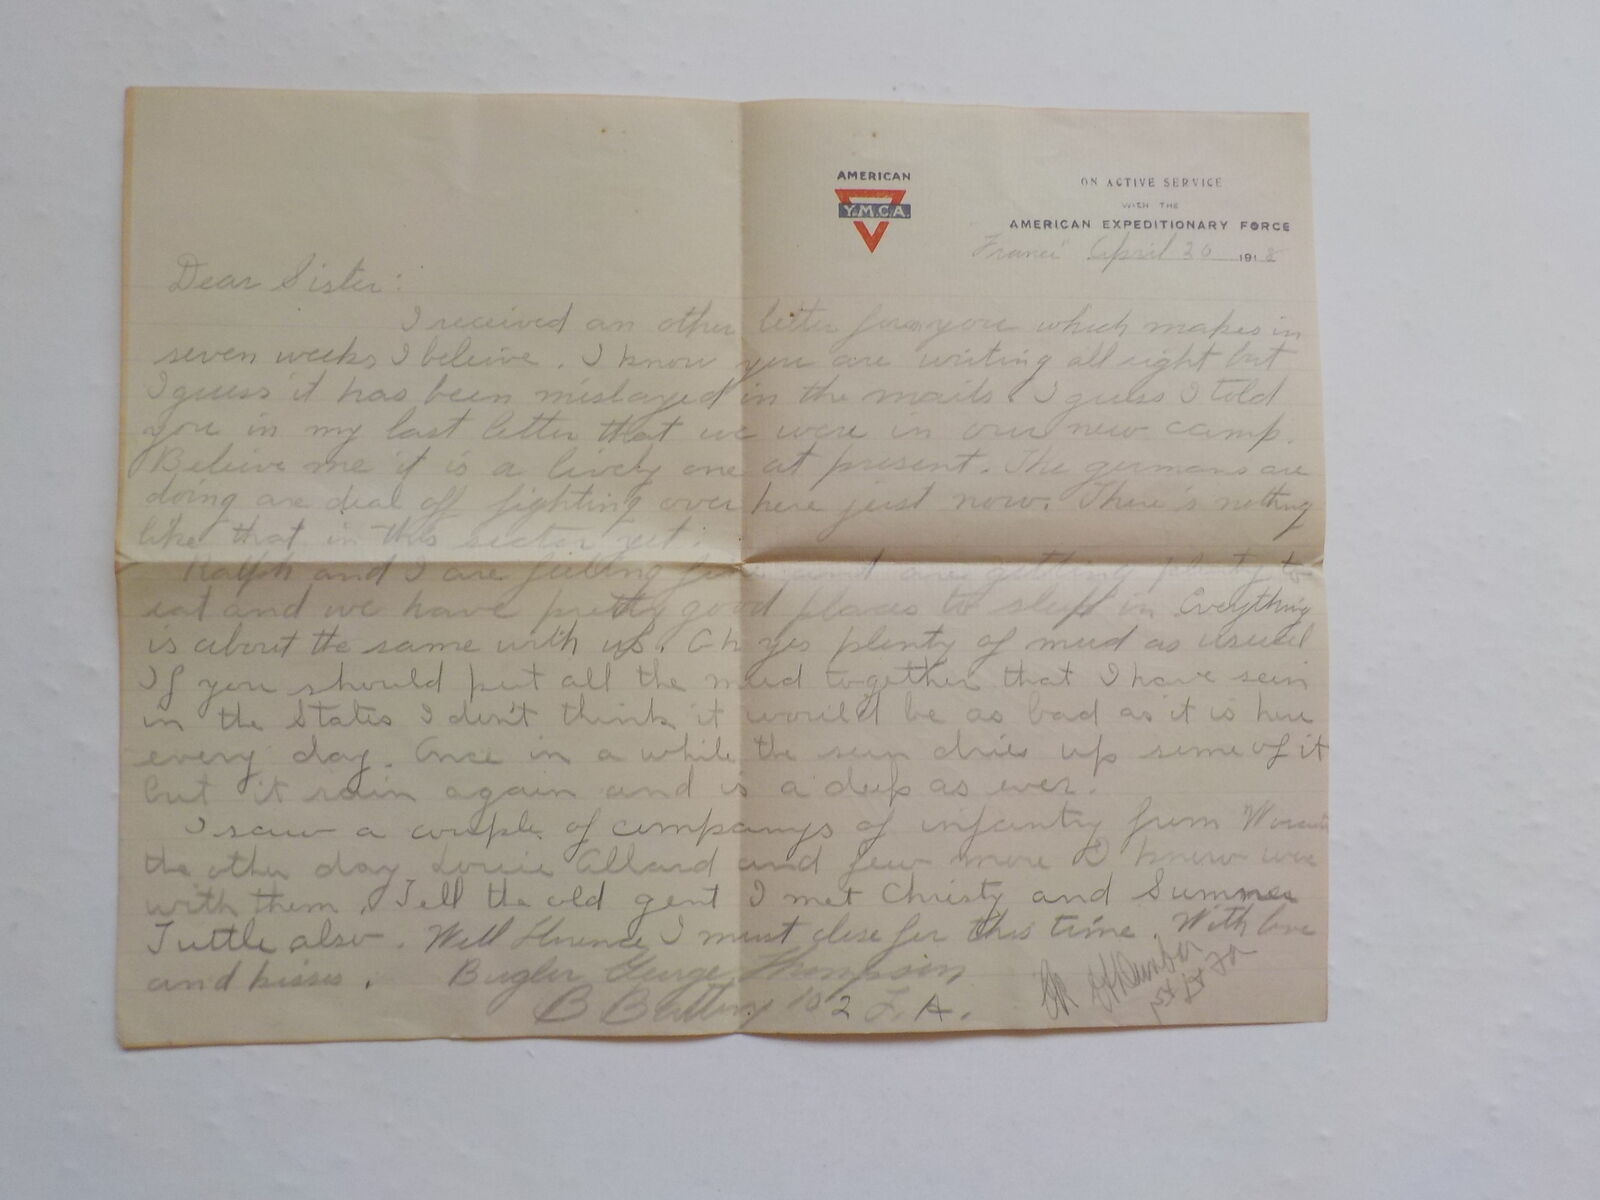 AMERICAN
Y.M.C.A.
ON ACTIVE SERVICE
WITH THE
AMERICAN EXPEDITIONARY FORCE
France" April 20 1918
Dear Sister:
I received an other letter from you which makes in
seven weeks I beleive. I know you are writing all right but
I guess it has been mislayed in the mails. I guess I told
you in my last letter that we were in our new camp.
Beleive me it is a lively one at present. The germans are
doing are deal of fighting over here just now. There's nothing
like that in this sector yet.
Ralph and I are feeling fine and are getting plenty to
eat and we have pretty good places to sleep in Everything
is about the same with us. Oh yes plenty of mud as usual
If you should put all the mud together that I have sein
in the States I don't think it would be as bad as it is here
every day. Once in a while the sun dries up some of it
but it rain again and is a deep as ever.
I saw a couple of companys of infantry from
the other day Louie Allard and few more I knew were
with them. Tell the old gent I met Christy and Sumner
Tuttle also. Well Florence I must close for this time. With love
and kisses. Bugler George Thompson
B Battery 102 F.A.
OK
1st Lt FA